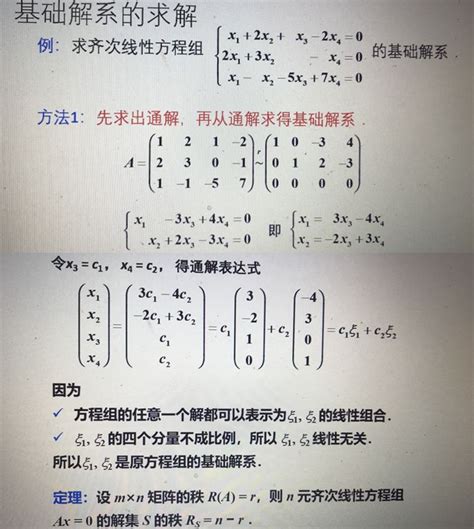 基础解系的求解
例：求齐次线性方程组 { x₁+2x₂+ x₃−2x₄=0
2x₁+3x₂ − x₄=0 的基础解系.
x₁− x₂−5x₃+7x₄=0
方法1：先求出通解，再从通解求得基础解系.
A = ( 1 2 1 −2 ; 2 3 0 −1 ; 1 −1 −5 7 ) r~ ( 1 0 −3 4 ; 0 1 2 −3 ; 0 0 0 0 )
{ x₁ −3x₃+4x₄=0 ; x₂+2x₃−3x₄=0 即 { x₁= 3x₃−4x₄ ; x₂=−2x₃+3x₄
令x₃=c₁，x₄=c₂，得通解表达式
( x₁ ; x₂ ; x₃ ; x₄ ) = ( 3c₁−4c₂ ; −2c₁+3c₂ ; c₁ ; c₂ ) = c₁ ( 3 ; −2 ; 1 ; 0 ) + c₂ ( −4 ; 3 ; 0 ; 1 ) = c₁ξ₁+c₂ξ₂
因为
✓ 方程组的任意一个解都可以表示为ξ₁, ξ₂ 的线性组合.
✓ ξ₁, ξ₂ 的四个分量不成比例，所以 ξ₁, ξ₂ 线性无关.
所以ξ₁, ξ₂ 是原方程组的基础解系.
定理：设 m×n 矩阵的秩 R(A)=r，则 n 元齐次线性方程组
Ax=0 的解集 S 的秩 R_S=n−r .